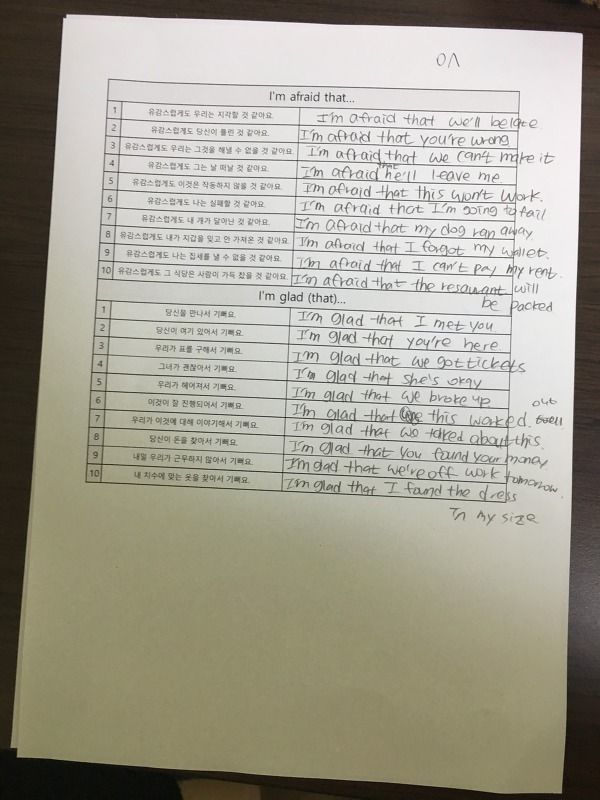 I'm afraid that...
1 유감스럽게도 우리는 지각할 것 같아요. I'm afraid that we'll be late.
2 유감스럽게도 당신이 틀린 것 같아요. I'm afraid that you're wrong
3 유감스럽게도 우리는 그것을 해낼 수 없을 것 같아요. I'm afraid that we can't make it
4 유감스럽게도 그는 날 떠날 것 같아요. I'm afraid that he'll leave me
5 유감스럽게도 이것은 작동하지 않을 것 같아요. I'm afraid that this won't work.
6 유감스럽게도 나는 실패할 것 같아요. I'm afraid that I'm going to fail
7 유감스럽게도 내 개가 달아난 것 같아요. I'm afraid that my dog ran away
8 유감스럽게도 내가 지갑을 잊고 안 가져온 것 같아요. I'm afraid that I forgot my wallet.
9 유감스럽게도 나는 집세를 낼 수 없을 것 같아요. I'm afraid that I can't pay my rent.
10 유감스럽게도 그 식당은 사람이 가득 찼을 것 같아요. I'm afraid that the resaurant will
be packed
I'm glad (that)...
1 당신을 만나서 기뻐요. I'm glad that I met you
2 당신이 여기 있어서 기뻐요. I'm glad that you're here.
3 우리가 표를 구해서 기뻐요. I'm glad that we got tickets
4 그녀가 괜찮아서 기뻐요. I'm glad that she's okay
5 우리가 헤어져서 기뻐요. I'm glad that we broke up
out
6 이것이 잘 진행되어서 기뻐요. I'm glad that this worked.
7 우리가 이것에 대해 이야기해서 기뻐요. I'm glad that we talked about this.
8 당신이 돈을 찾아서 기뻐요. I'm glad that you found your money
9 내일 우리가 근무하지 않아서 기뻐요. I'm glad that we're off work tomorrow.
10 내 치수에 맞는 옷을 찾아서 기뻐요. I'm glad that I found the dress
In my size